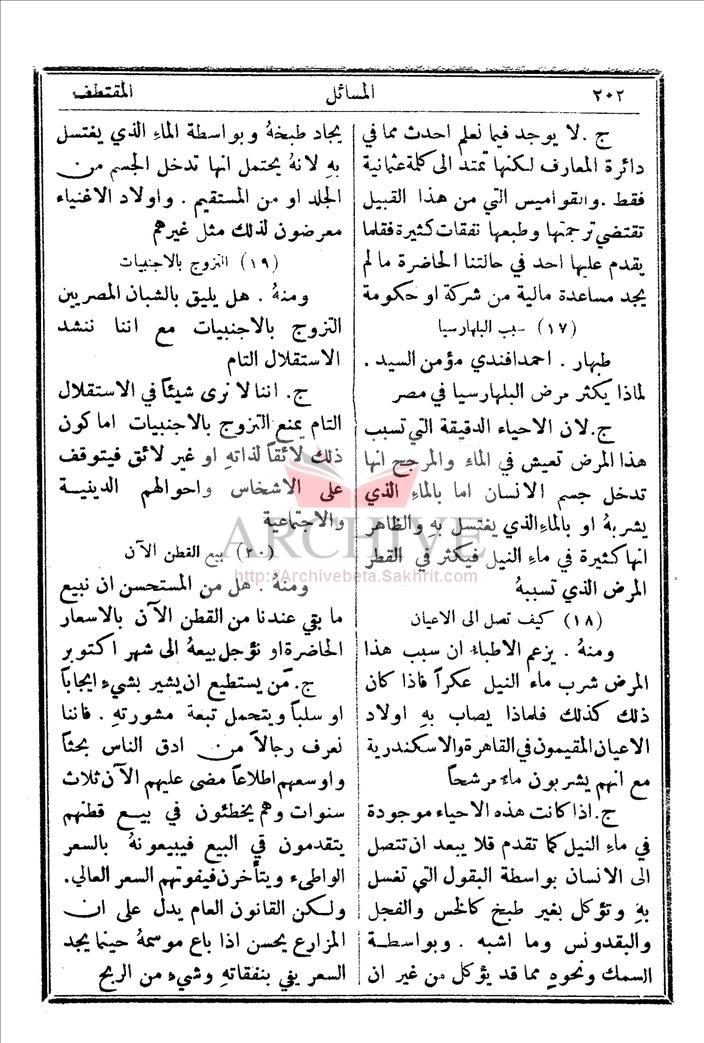 ٢٠٢ المسائل المقتطف
ج . لا يوجد فيما نعلم احدث مما في
دائرة المعارف لكنها تمتد الى كلمة عثمانية
فقط . والقواميس التي من هذا القبيل
تقتضي ترجمتها وطبعها نفقات كثيرة فقلما
يقدم عليها احد في حالتنا الحاضرة ما لم
يجد مساعدة مالية من شركة او حكومة
(١٧) سبب البلهارسيا
طهار . احمد افندي مؤمن السيد .
لماذا يكثر مرض البلهارسيا في مصر
ج. لان الاحياء الدقيقة التي تسبب
هذا المرض تعيش في الماء والمرجح انها
تدخل جسم الانسان اما بالماء الذي
يشربهُ او بالماء الذي يغتسل به والظاهر
انها كثيرة في ماء النيل فيكثر في القطر
المرض الذي تسببهُ
(١٨) كيف تصل الى الاعيان
ومنهُ . يزعم الاطباء ان سبب هذا
المرض شرب ماء النيل عكراً فاذا كان
ذلك كذلك فلماذا يصاب بهِ اولاد
الاعيان المقيمون في القاهرة والاسكندرية
مع انهم يشربون ماء مرشحاً
ج. اذا كانت هذه الاحياء موجودة
في ماء النيل كما تقدم فلا يبعد ان تتصل
الى الانسان بواسطة البقول التي تغسل
بهِ وتؤكل بغير طبخ كالخس والفجل
والبقدونس وما اشبه . وبواسطة
السمك ونحوهِ مما قد يؤكل من غير ان
يجاد طبخهُ وبواسطة الماء الذي يغتسل
بهِ لانهُ يحتمل انها تدخل الجسم من
الجلد او من المستقيم . واولاد الاغنياء
معرضون لذلك مثل غيرهم
(١٩) التزوج بالاجنبيات
ومنهُ . هل يليق بالشبان المصريين
التزوج بالاجنبيات مع اننا ننشد
الاستقلال التام
ج. اننا لا نرى شيئاً في الاستقلال
التام يمنع التزوج بالاجنبيات اما كون
ذلك لائقاً لذاتهِ او غير لائق فيتوقف
على الاشخاس واحوالهم الدينية
والاجتماعية
(٢٠) بيع القطن الآن
ومنهُ . هل من المستحسن ان نبيع
ما بقي عندنا من القطن الآن بالاسعار
الحاضرة او نؤجل بيعهُ الى شهر اكتوبر
ج. مَن يستطيع ان يشير بشيء ايجاباً
او سلباً ويتحمل تبعة مشورتهِ . فاننا
نعرف رجالاً من ادق الناس بحثاً
واوسعهم اطلاعاً مضى عليهم الآن ثلاث
سنوات وهم يخطئون في بيع قطنهم
يتقدمون في البيع فيبيعونهُ بالسعر
الواطىء ويتأخرن فيفوتهم السعر العالي.
ولكن القانون العام يدل على ان
المزارع يحسن اذا باع موسمهُ حينما يجد
السعر يفي بنفقاتهِ وشيء من الربح
ARCHIVE
http://Archivebeta.Sakhrit.com